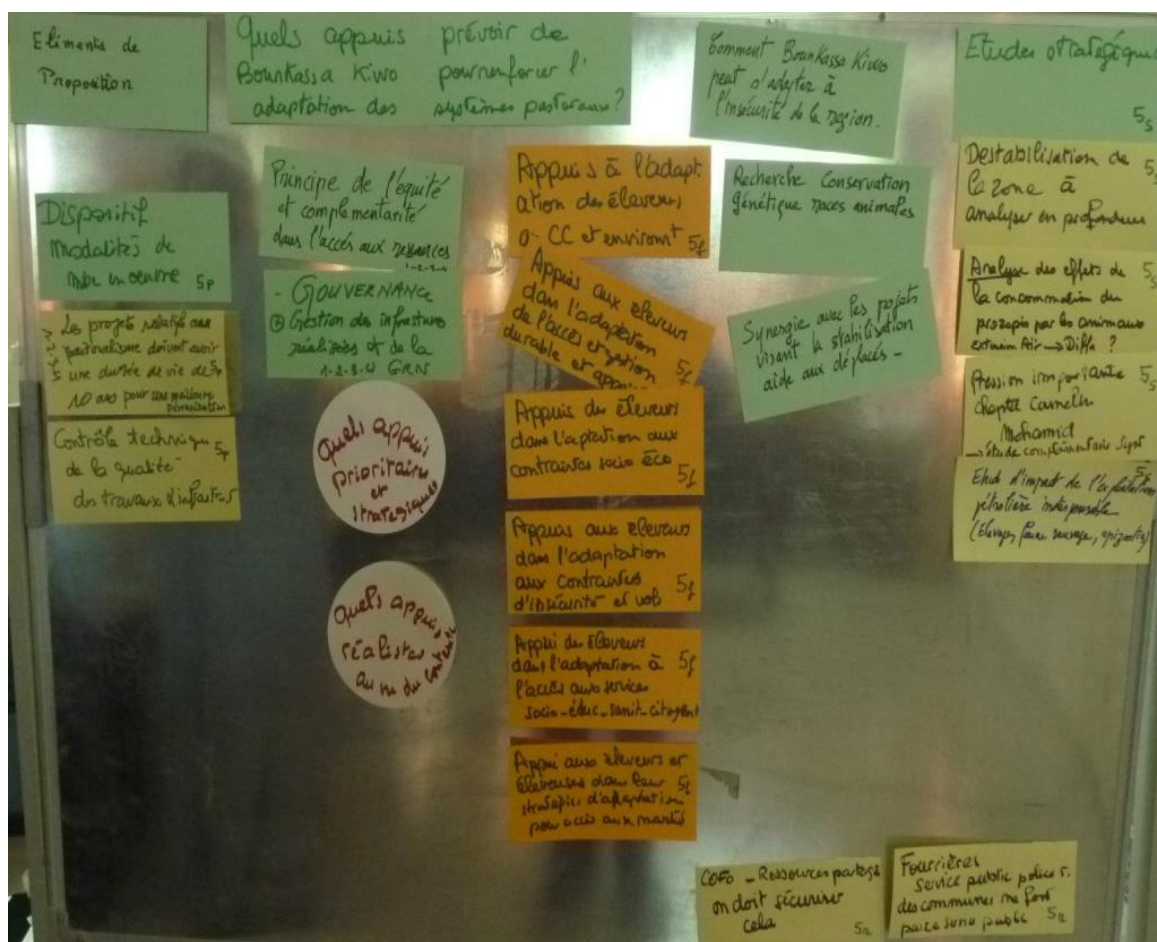 Eliments de
Proposition
Quels appuis prévoir de
Bounkassa Kiwo pour renforcer l'
adaptation des systèmes pastoraux?
Comment Bounkassa Kiwo
peut s'adapter à
l'insécurité de la region.
Etudes stratégiques
5s
Dispositif
Modalités de
mise en oeuvre 5p
Les projets relatif aux
pastoralisme doivent avoir
une durée de vie de
10 ans pour une meilleure
Contrôle technique 5p
de la qualité
des travaux d'infrastr
Principe de l'équité
et complementarité
dans l'accès aux ressources
1-2-3-4
- GOUVERNANCE
Gestion des infrastures
réalisées et de la
1-2-3-4 GRN
Quels appuis
prioritaires
et
stratégiques
Quels appuis
réalistes
au vu du contexte
Appuis à l'adapt
ation des éleveurs
CC et environt 5f
Appuis aux éleveurs
dans l'adaptation
de l'accès et gstion
durable et 5f
Appuis des éleveurs
dans l'aptation aux
contraintes socio éco
5f
Appuis aux eleveurs
dans l'adaptation
aux contraintes 5f
d'insécurité et vols
Appui des éleveurs
dans l'adaptation à 5f
l'accès aux services
socio-éduc-sanit-citoyent
Appui aux éleveurs et
éleveuses dans leur 5f
stratégies d'adaptation
pour accès aux marchés
Recherche Conservation
génétique races animales
Synergie avec les projets
visant la stabilisation
aide aux déplacés -
Destabilisation de 5s
la zone à
analyser en profondeur
Analyse des effets de 5s
la consommation du
prozopis par les animaux
Air → Diffa ?
Pression importante 5s
cheptel Camelin
Mohamid
→ étude complémentaire
Etude d'impact de l'exploitation 5s
pétrolière indispensable
(Elevages, faune sauvage, epizootie)
COFO - Ressources partagé
on doit sécuriser
cela 5r
Fourrières
service public
des communes ne font
pas le sens public 5r